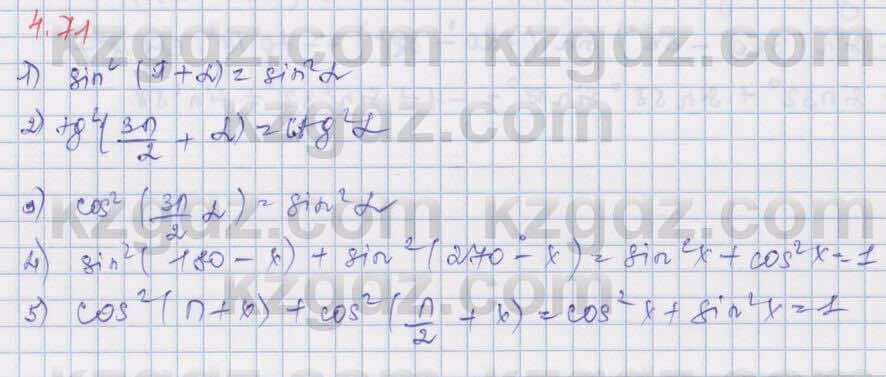 4.71
1) sin² (π + α) = sin² α
2) tg² (3π/2 + α) = ctg² α
3) cos² (3π/2 α) = sin² α
4) sin² (180 - x) + sin² (270° - x) = sin² x + cos² x = 1
5) cos² (π + x) + cos² (π/2 + x) = cos² x + sin² x = 1
kzgdz.com kzgdz.com
kzgdz.com
kzgdz.com kzgdz.com
kzgdz.com
kzgdz.com kzgdz.com